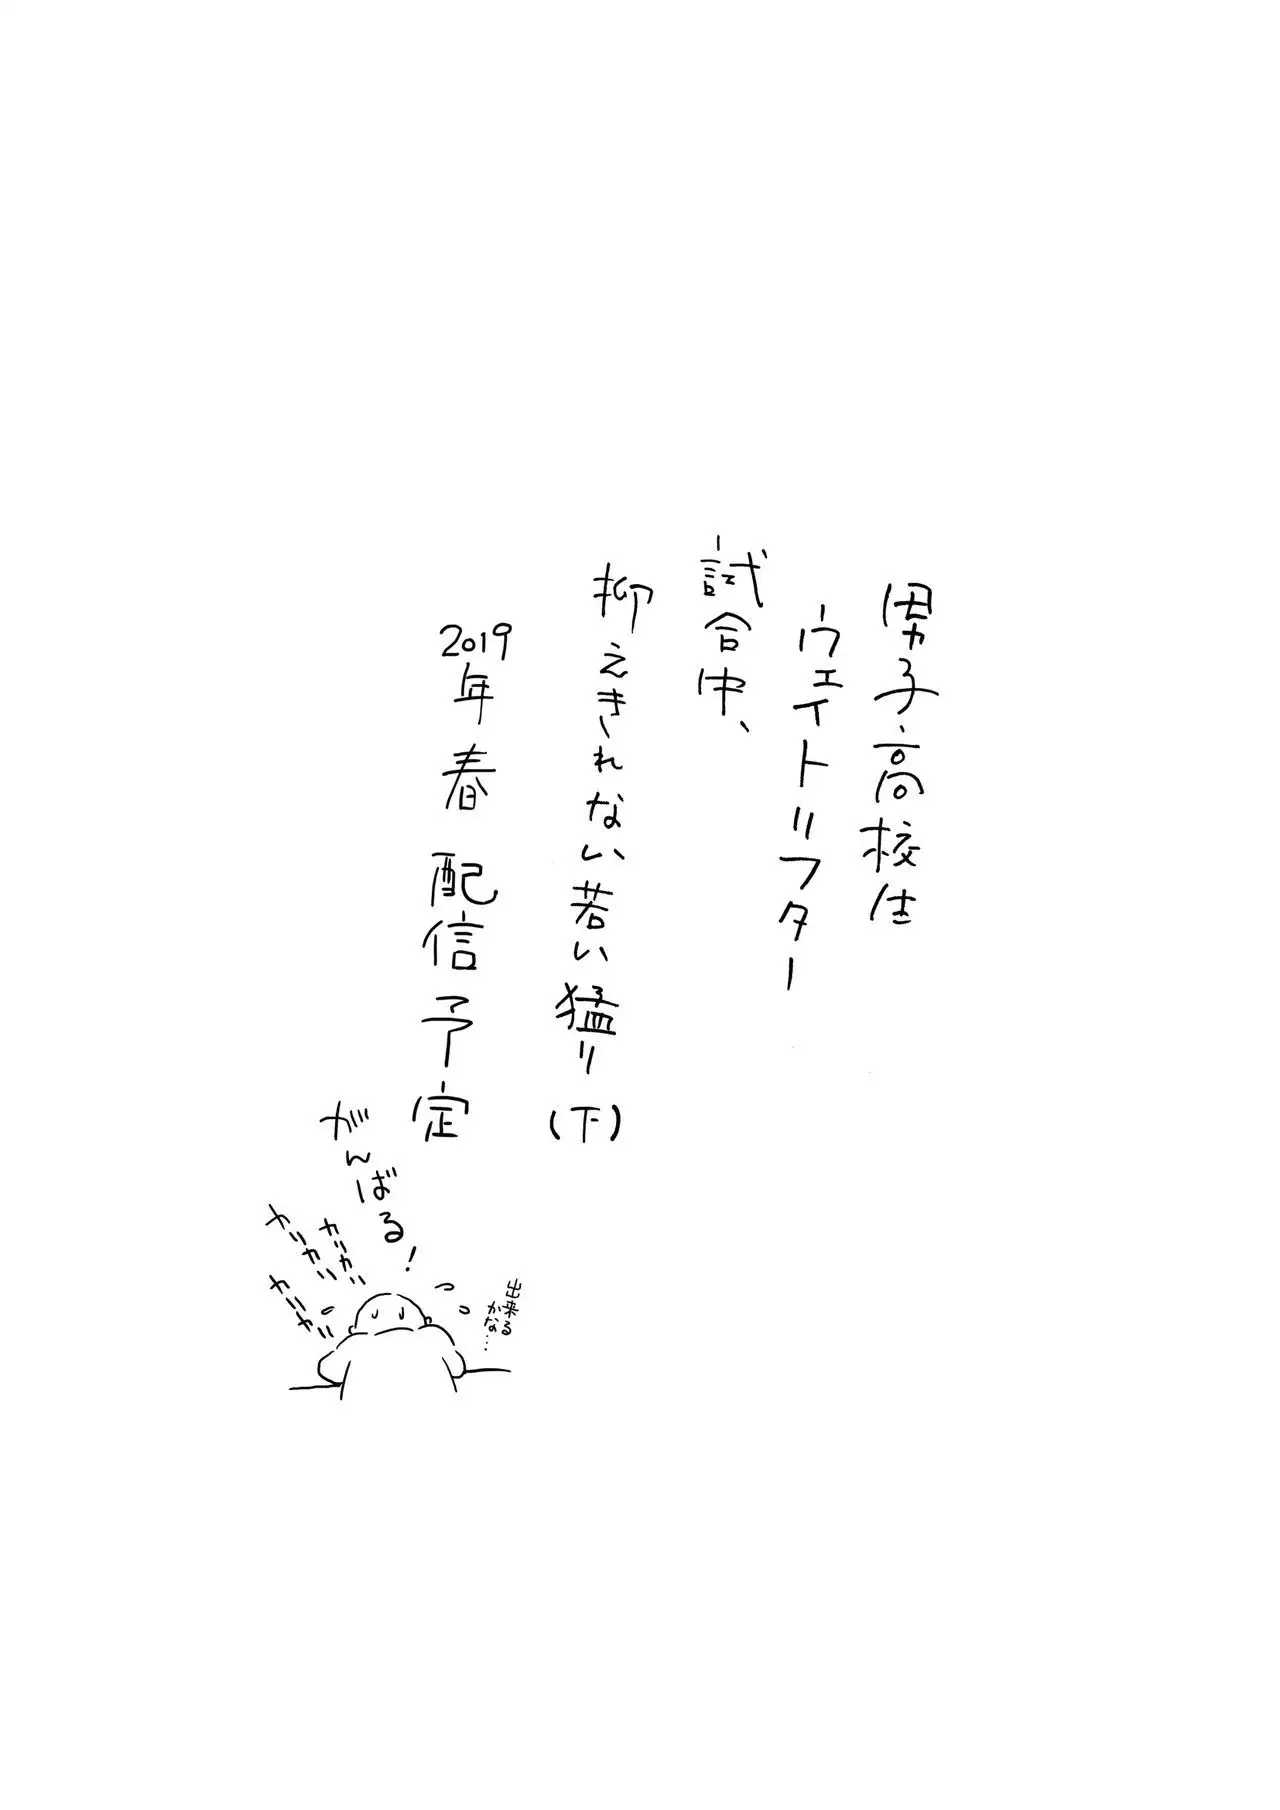 男子高校生
ウェイトリフター
試合中、
抑えきれない若い猛り(下)
2019年春配信予定
がんばる!
カリカリ
カリカリ
カリカリ
出来る
かな…